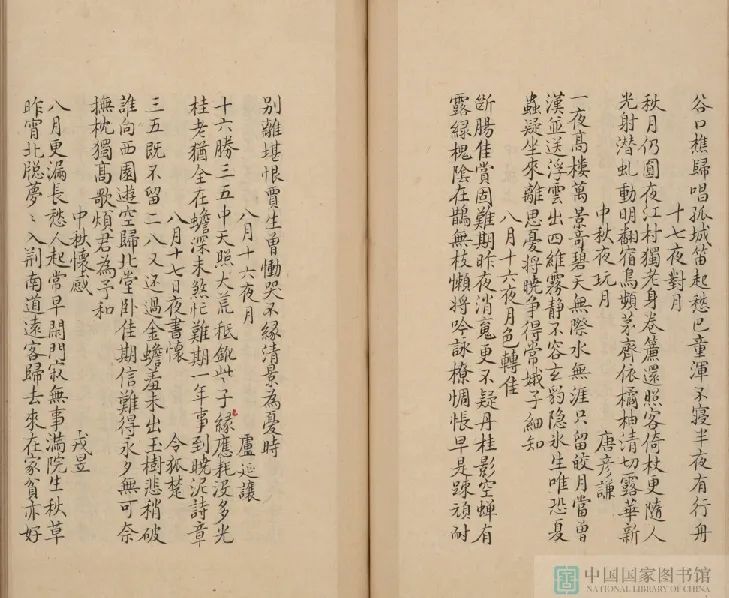 谷口樵歸唱孤城笛起愁巴童渾不寢半夜有行舟
十七夜對月
秋月仍圓夜江村獨老身卷簾還照客倚杖更隨人
光射潛虬動明翻宿鳥頻茅齊依橘柚清切露華新
中秋夜玩月
唐彥謙
一夜高樓萬景奇碧天無際水無涯只留皎月當曾
漢並送浮雲出四維霧靜不容玄豹隐氷生唯恐夏
蟲疑坐來離思憂將曉争得嫦娥子細知
八月十六夜月色轉佳
斷腸佳賞固難期昨夜消䰟更不疑丹桂影空蟬有
露緑槐隂在鵲無枝懶將吟詠橑惆悵早是踈頑耐
别離堪恨賈生曾慟哭不緣清景為憂時
八月十六夜月
盧延讓
十六勝三五中天照大荒秪
子緣應耗没多光
桂老猶全在蟾深未煞忙難期一年事到曉泥詩章
八月十七日夜書懐
令狐楚
三五既不留二八又还過金蟾羞未出玉樹悲稍破
誰向西園遊空歸北堂卧佳期信難得永夕無可奈
撫枕獨高歌煩君為予和
中秋懷感
戎昱
八月更漏長愁人起常早閇門寂無事滿院生秋草
昨宵北牎夢〻入荆南道遠客歸去來在家貧亦好
中国国家图书馆
NATIONAL LIBRARY OF CHINA